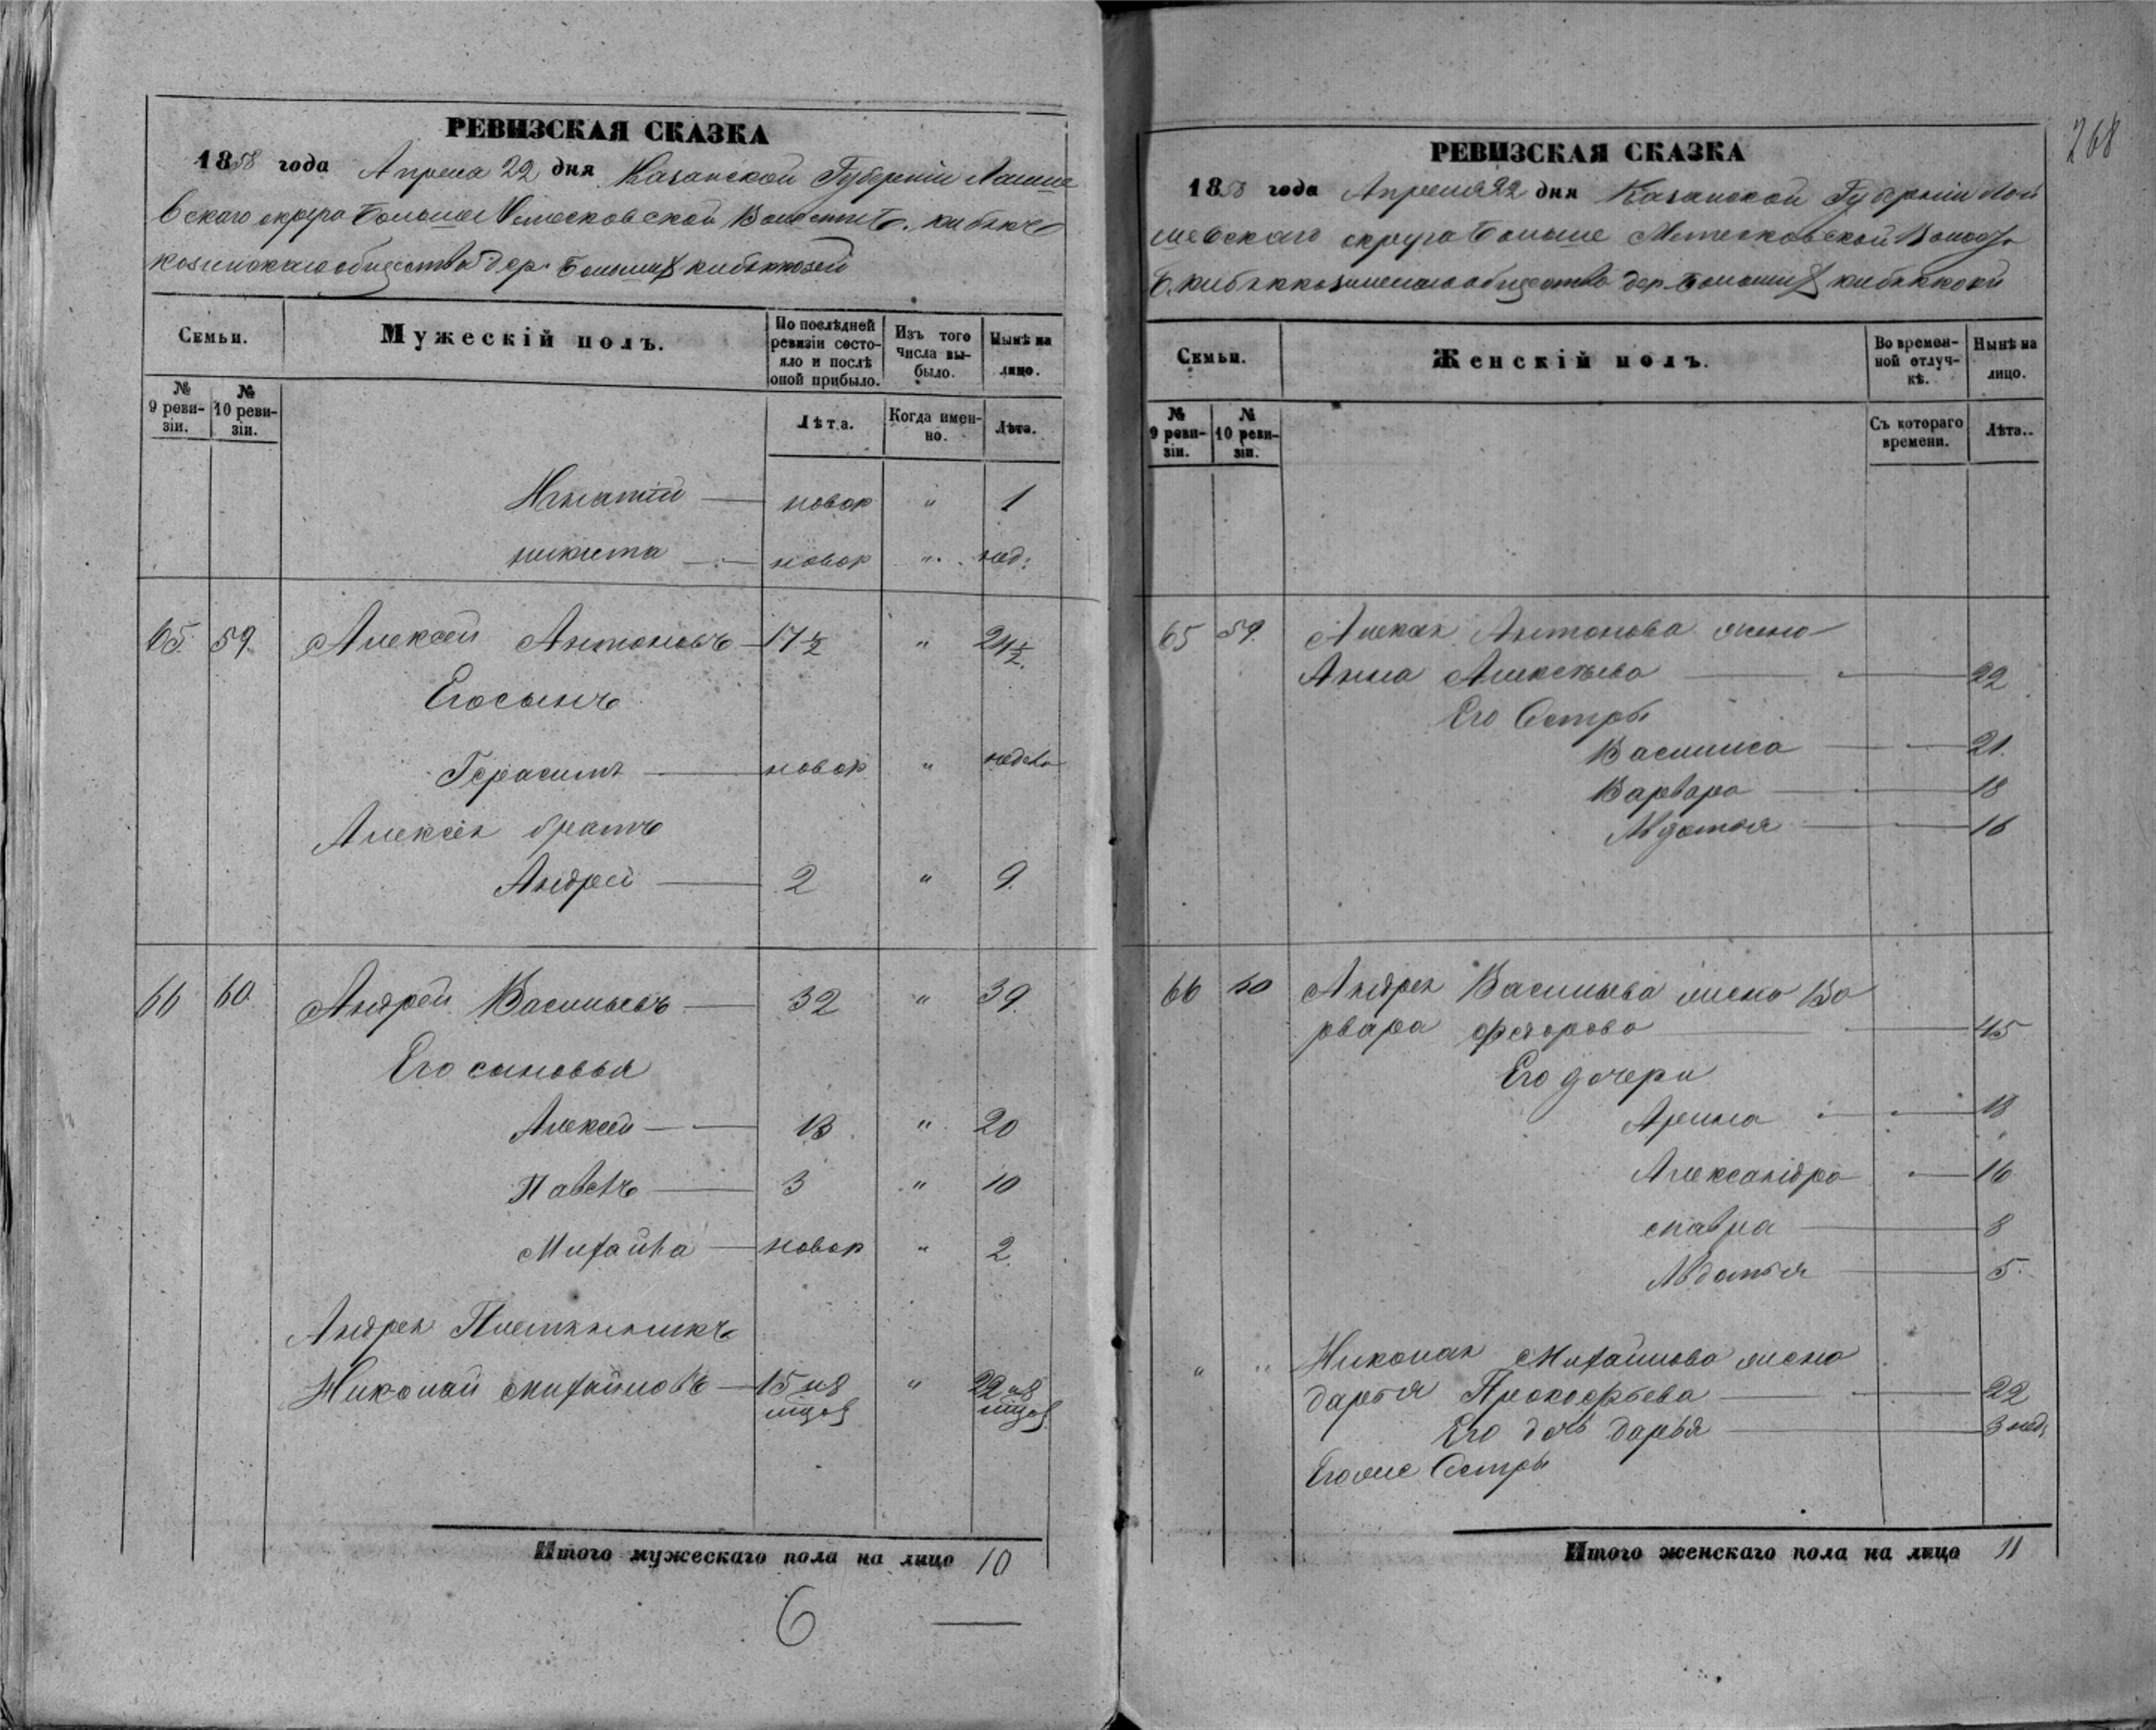 РЕВИЗСКАЯ СКАЗКА
1858 года Апреля 22 дня Казанской Губерніи Лаише
вскаго округа Больше Метесковской Волости Б. кибякъ
козинскаго общества дер. Большихъ кибяккозей
Семьи.
Мужескій полъ.
По послѣдней ревизіи состояло и послѣ оной прибыло.
Изъ того числа выбыло.
Нынѣ на лицо.
№ 9 ревизіи.
№ 10 ревизіи.
Лѣта.
Когда именно.
Лѣта.
Игнатій — новор „ 1
никита — новор „ нед:
65. 59. Алексей Антоновъ — 17½ „ 24½.
Его сынъ
Герасимъ — новор „ недели
Алексея братъ
Андрей — 2 „ 9.
66 60. Андрей Васильевъ — 32 „ 39.
Его сыновья
Алексей — 13 „ 20
Павелъ — 3 „ 10
Михайла — новор „ 2
Андрея Племянникъ
Николай михайловъ — 15 и 8 „ 22 и 8
мцов мцов
Итого мужескаго пола на лицо 10
6
268
РЕВИЗСКАЯ СКАЗКА
1858 года Апреля 22 дня Казанской Губерніи Лаи
шевскаго округа Больше Метесковской Волости
Б. кибяккозинскаго общества дер. Большихъ кибяккози
Семьи.
Женскій полъ.
Во временной отлучкѣ.
Нынѣ на лицо.
№ 9 ревизіи.
№ 10 ревизіи.
Съ котораго времени.
Лѣта..
65 59. Алексея Антонова жена
Анна Алексеева — 22
Его Сестры
Василиса — 21.
Варвара — 18
Авдотья — 16
66 60 Андрея Васильева жена Ва
рвара федорова — 45
Его дочери
Арина — 18
Александра — 16
мавра — 8
Авдотья — 5.
„ „ Николая Михайлова жена
дарья Прокофьева — 22
Его дочь дарья — 3 нед.
Его же Сестры
Итого женскаго пола на лицо 11